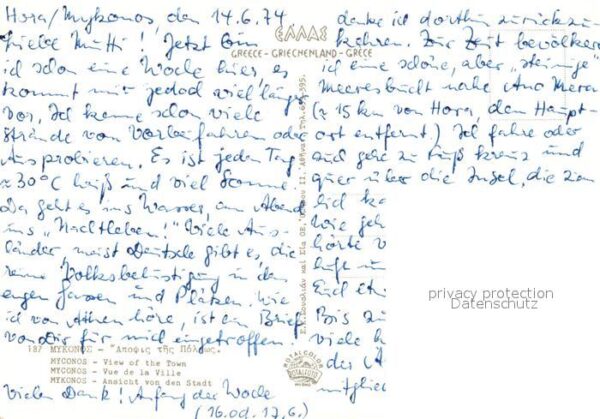 Hora/Mykonos den 14.6.74
Liebe Mutti! Jetzt bin
ich schon eine Woche hier, es
kommt mir jedoch viel länger
vor, Ich kenne schon viele
Strände von Vorbeifahren oder
Ausprobieren. Es ist jeden Tag
≈ 30°C heiß und viel Sonne.
Da geht es ins Wasser, am Abend
ins "Nachtleben!" Viele Aus-
länder, meist Deutsche gibt es, die
reine Volksbelustigung in den
engen Gassen und Plätzen. Wie
ich von Athen höre, ist ein Brief
von dir für mich eingetroffen.
Vielen Dank! Anfang der Woche
(16. od. 17.6.)
denke ich dorthin zurückzu-
kehren. Zur Zeit bevölkere
ich eine schöne, aber "steinige"
Meeresbucht nahe Ano Mera
(≈ 15 km von Hora, dem Haupt-
ort entfernt.) Ich fahre oder
und gehe zu Fuß kreuz und
quer über die Insel, die
lich
Wie
hörte
Luft
Eud
Bis
viele
der
mitglie
ΕΛΛΑΣ
GREECE - GRIECHENLAND - GRECE
137 ΜΥΚΟΝΟΣ - Ἄποψις τῆς Πόλεως.
MYCONOS - View of the Town
MYCONOS - Vue de la Ville
MYKONOS - Ansicht von den Stadt
privacy protection
Datenschutz